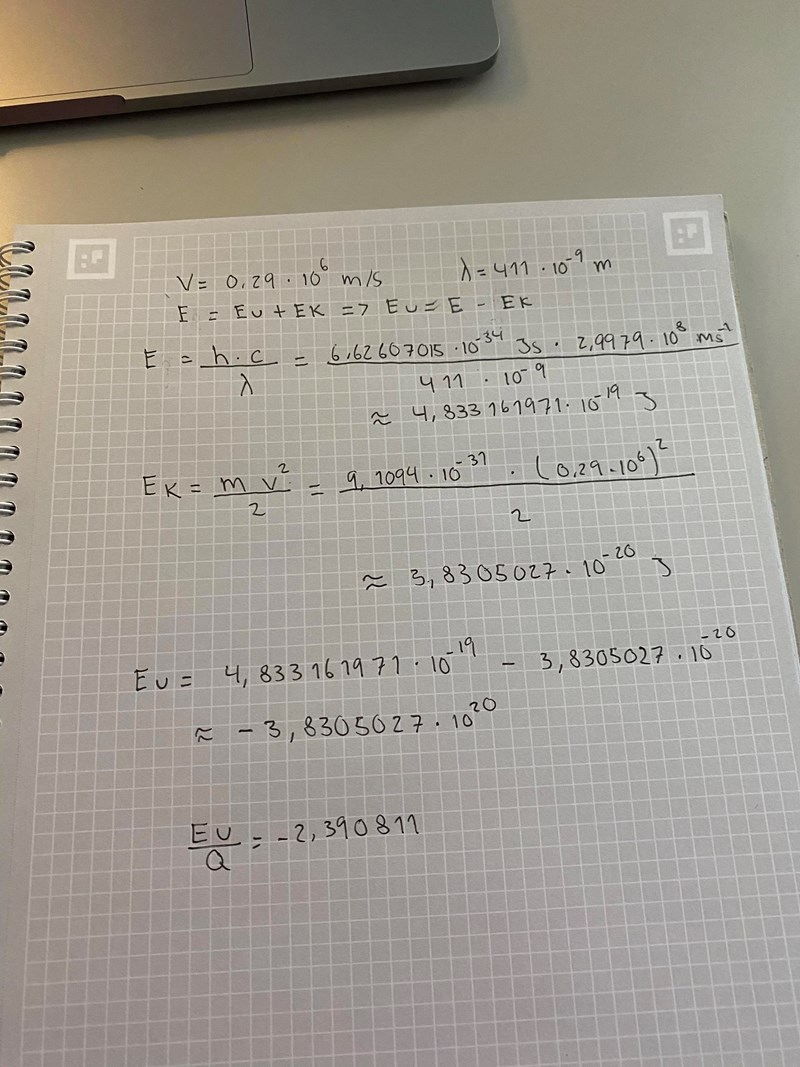 V = 0,29 · 10⁶ m/s λ = 411 · 10⁻⁹ m
E = EU + EK => EU = E - EK
E = h · c / λ = 6,62607015 · 10⁻³⁴ Js · 2,9979 · 10⁸ ms⁻¹ / 411 · 10⁻⁹
≈ 4,833161971 · 10⁻¹⁹ J
EK = m v² / 2 = 9,1094 · 10⁻³¹ · (0,29 · 10⁶)² / 2
≈ 3,8305027 · 10⁻²⁰ J
EU = 4,833161971 · 10⁻¹⁹ - 3,8305027 · 10⁻²⁰
≈ - 3,8305027 · 10²⁰
EU / Q = - 2,390811